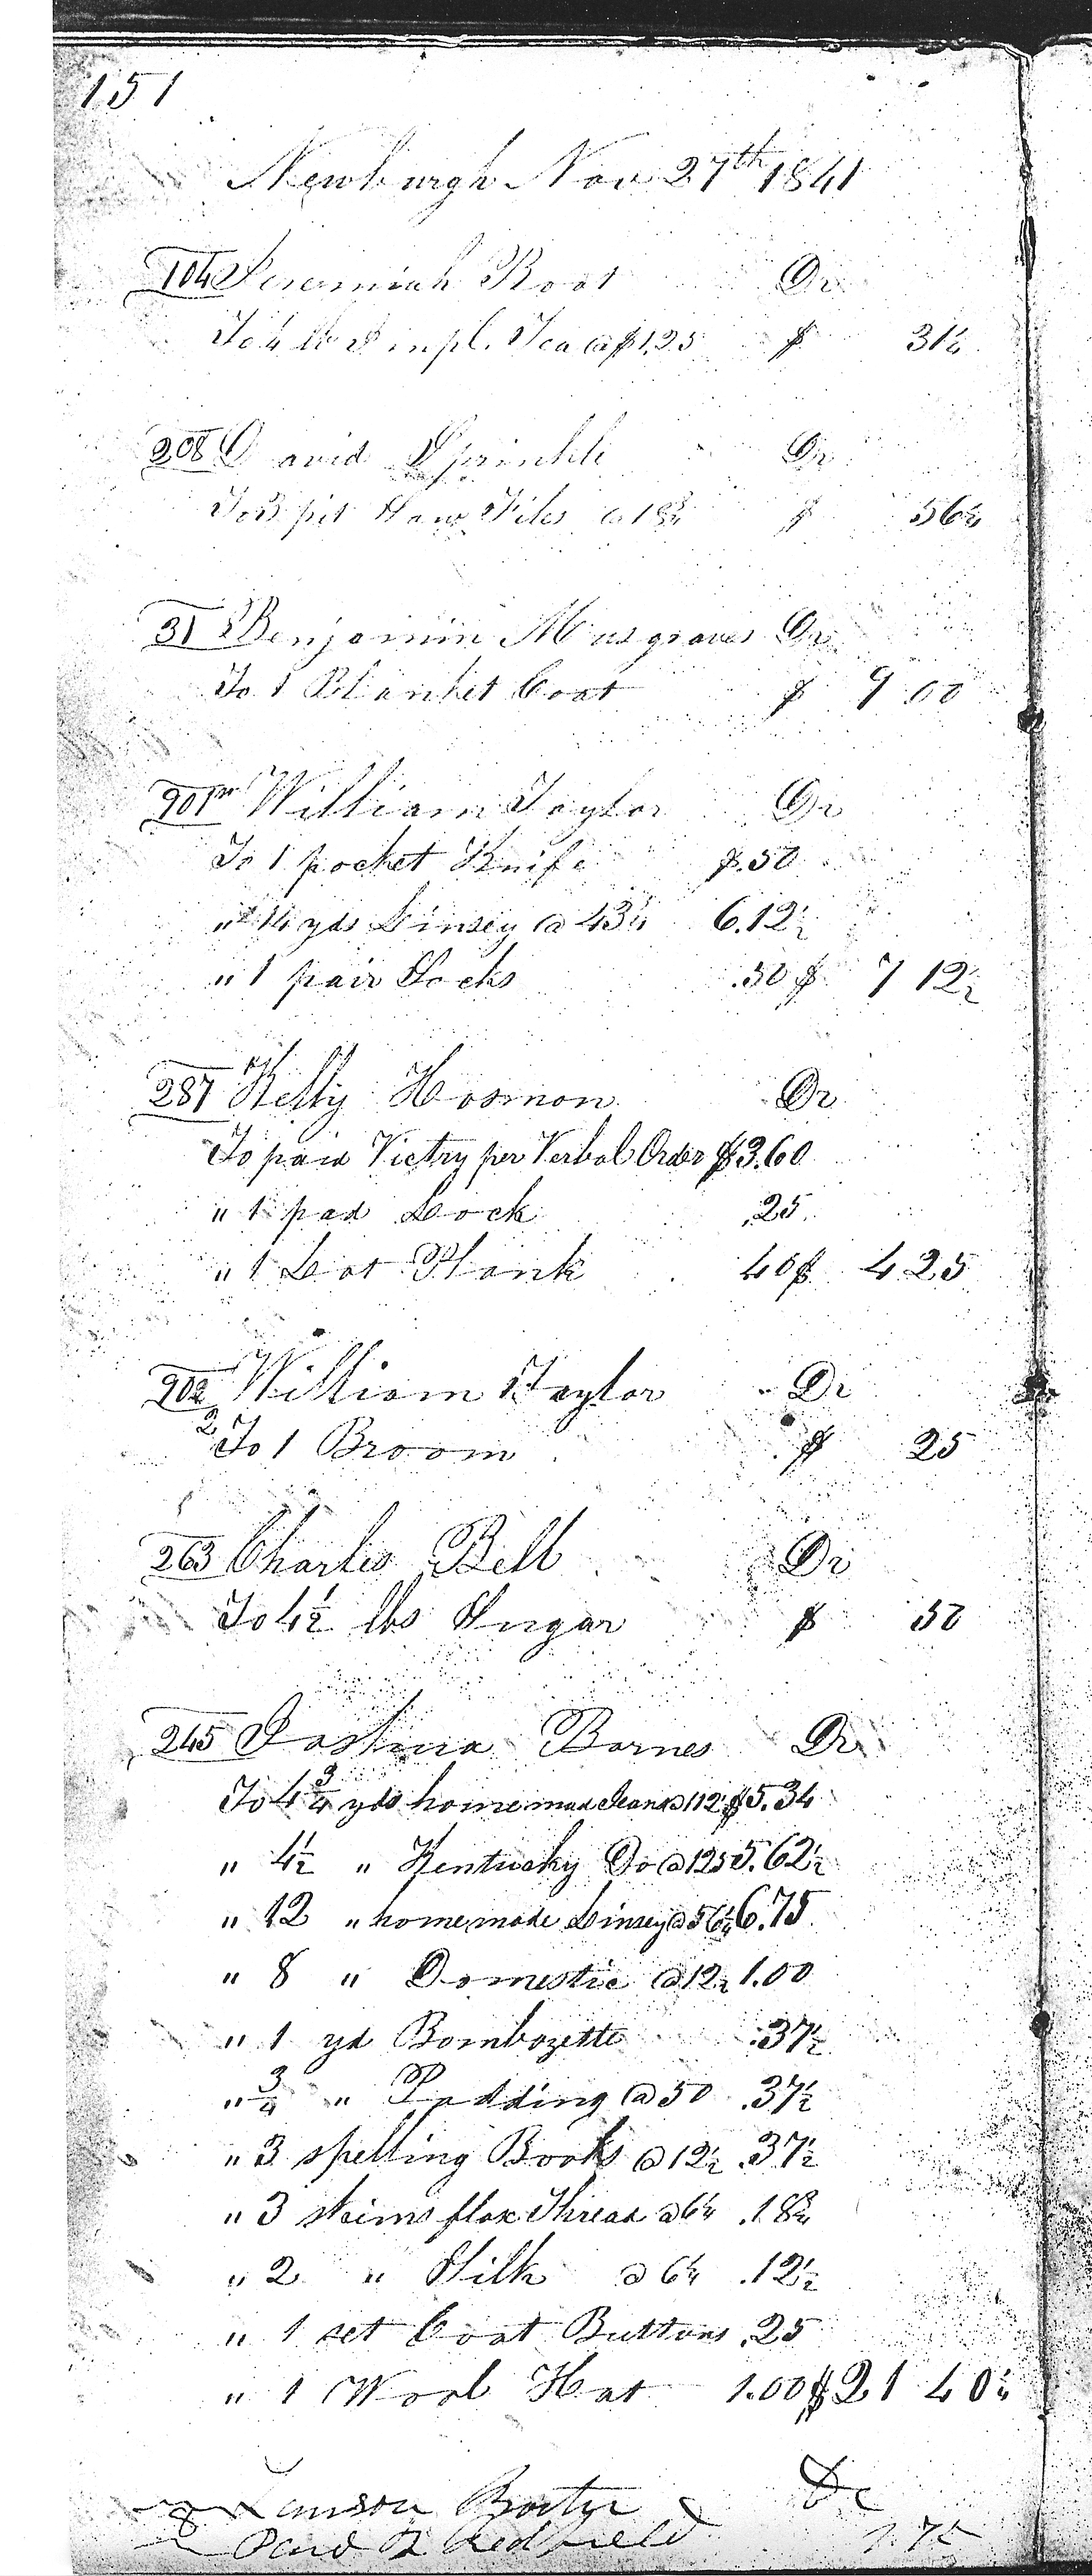 151
Newburgh Nov 27th 1841
104 Jeremiah Root Dr
To ¼ lb Impl. Tea @ $1.25 $ 31¼
208 David Sprinkle Dr
To 3 pit Saw Files @ 18¾ $ 56¼
31 Benjamin Musgraves Dr
To 1 Blanket Coat $ 9 00
201 William Taylor Dr
To 1 pocket Knife $.50
" 14 yds Linsey @ 43¾ 6.12½
" 1 pair Socks .50 $ 7 12½
287 Kelly Hosmon Dr
To paid Victry per Verbal Order $3.60
" 1 pad Lock .25
" 1 Lot Plank 40 $ 4 25
202 William Taylor Dr
2 To 1 Broom $ 25
263 Charles Bell Dr
To 4½ lbs Sugar $ 50
245 Joshua Barnes Dr
To 4¾ yds home mad Jeans @ 112½ $5.34
" 4½ " Kentucky Do @ 125 5.62½
" 12 " home made Linsey @ 56¼ 6.75
" 8 " Domestic @ 12½ 1.00
" 1 yd Bombozette .37½
" ¾ " Padding @ 50 .37½
" 3 spelling Books @ 12½ .37½
" 3 skeins flax Thread @ 6¼ .18¾
" 2 " Silk @ 6¼ .12½
" 1 set Coat Buttons .25
" 1 Wool Hat 1.00 $21 40¼
Dr
Paid Redfield 1.75